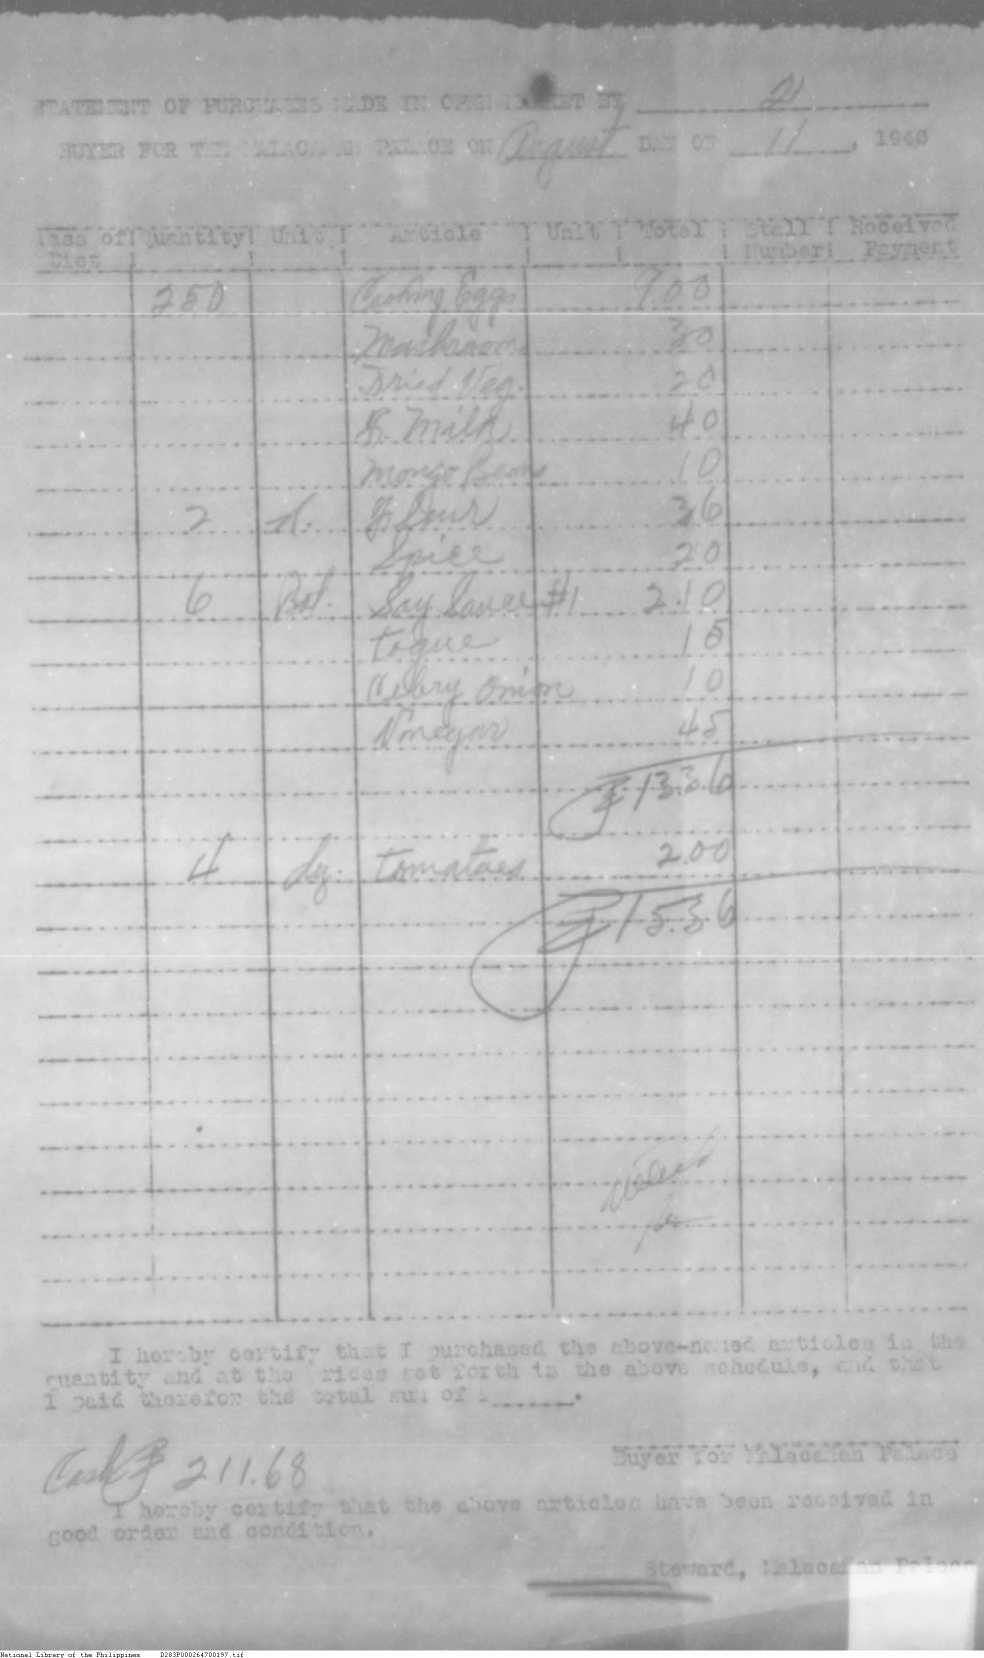 STATEMENT OF PURCHASES MADE IN OPEN MARKET BY 21
BUYER FOR THE MALACAÑAN PALACE ON August DAY OF 11, 1940
Class of Quantity Unit Article Unit Total Stall Received
Diet Number Payment
250 Cooking Eggs 9.00
Mushrooms 30
Dried Veg. 20
F. Milk 40
Mongo Beans 10
2 k. Flour 36
Spice 20
6 Bot. Soy Sauce #1 2.10
Togue 15
Celery Onion 10
Vinegar 45
₱ 13.36
4 dz. tomatoes 2.00
₱ 15.36
I hereby certify that I purchased the above-named articles in the
quantity and at the prices set forth in the above schedule, and that
I paid therefor the total sum of ₱______.
Buyer for Malacañan Palace
Cash ₱ 211.68
I hereby certify that the above articles have been received in
good order and condition.
Steward, Malacañan Palace
National Library of the Philippines D283P000264700197.tif